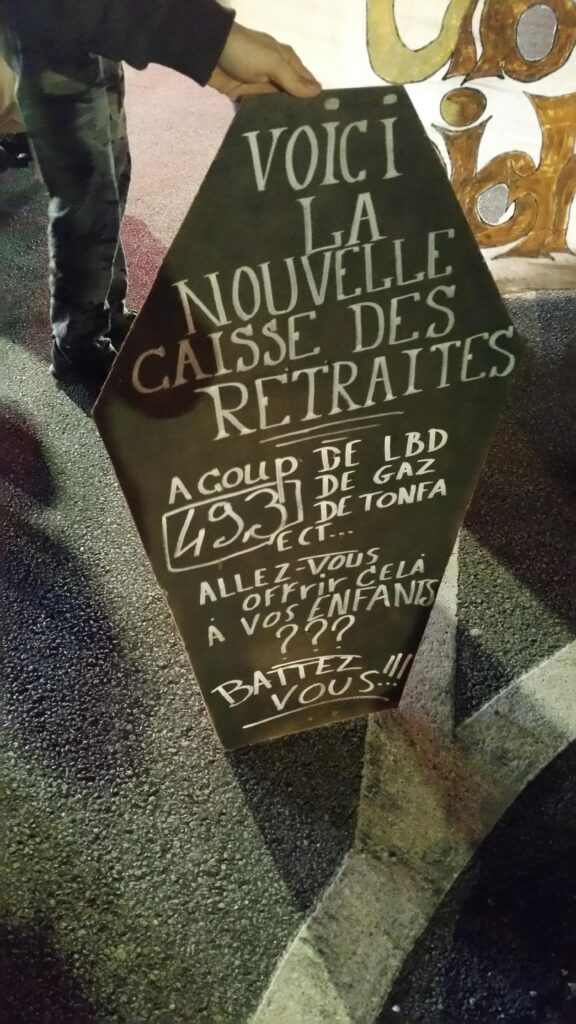 VOICI
LA
NOUVELLE
CAISSE DES
RETRAITES
A COUP DE LBD
49.3 DE GAZ
DE TONFA
ECT...
ALLEZ-VOUS
OFFRIR CELÀ
À VOS ENFANTS
???
BATTEZ
VOUS...!!!